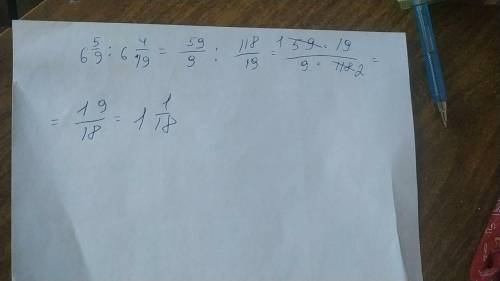 6 5/9 : 6 4/19 = 59/9 : 118/19 = 1 59 · 19 / 9 · 118 2 =
= 19/18 = 1 1/18